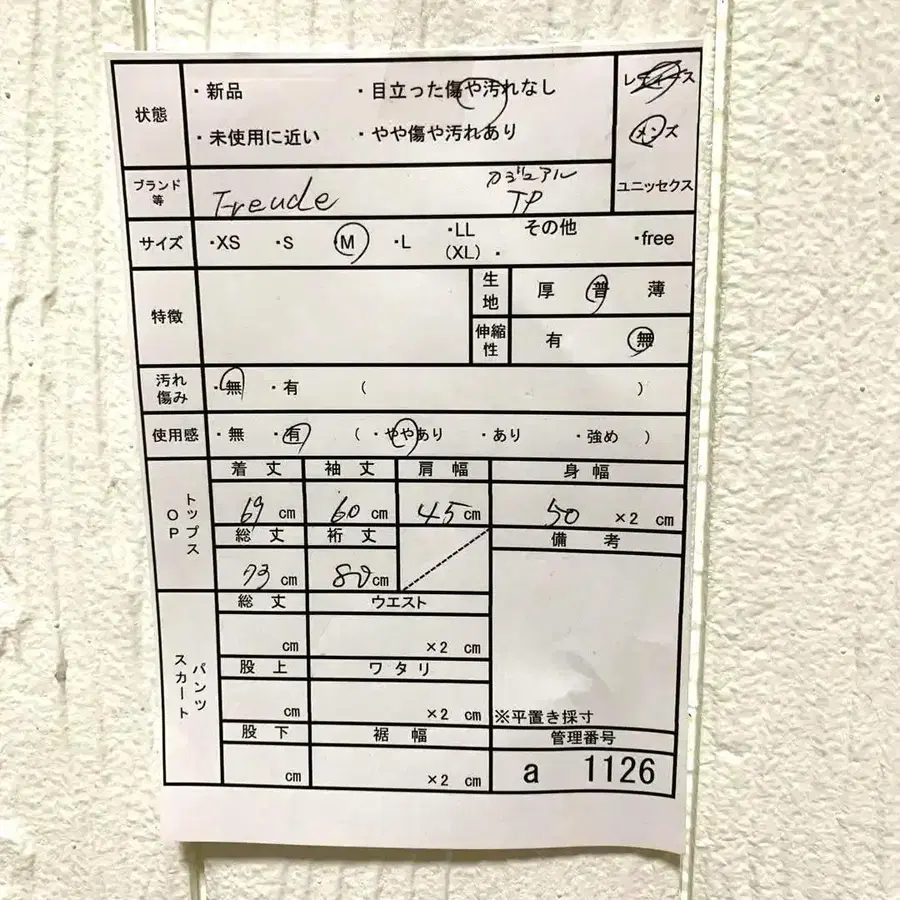 状態
・新品 ・目立った傷や汚れなし
・未使用に近い ・やや傷や汚れあり
メンズ
ユニッセクス
ブランド等 Freude カジュアル TP
サイズ ・XS ・S ・M ・L ・LL (XL) ・その他 ・free
特徴
生地 厚 普 薄
伸縮性 有 無
汚れ傷み ・無 ・有 ( )
使用感 ・無 ・有 ( ・ややあり ・あり ・強め )
トップス OP
着丈 袖丈 肩幅 身幅
69 cm 60 cm 45 cm 50 ×2 cm
総丈 裄丈 備考
73 cm 80 cm
パンツ スカート
総丈 ウエスト
cm ×2 cm
股上 ワタリ
cm ×2 cm
※平置き採寸
股下 裾幅 管理番号
cm ×2 cm
a 1126